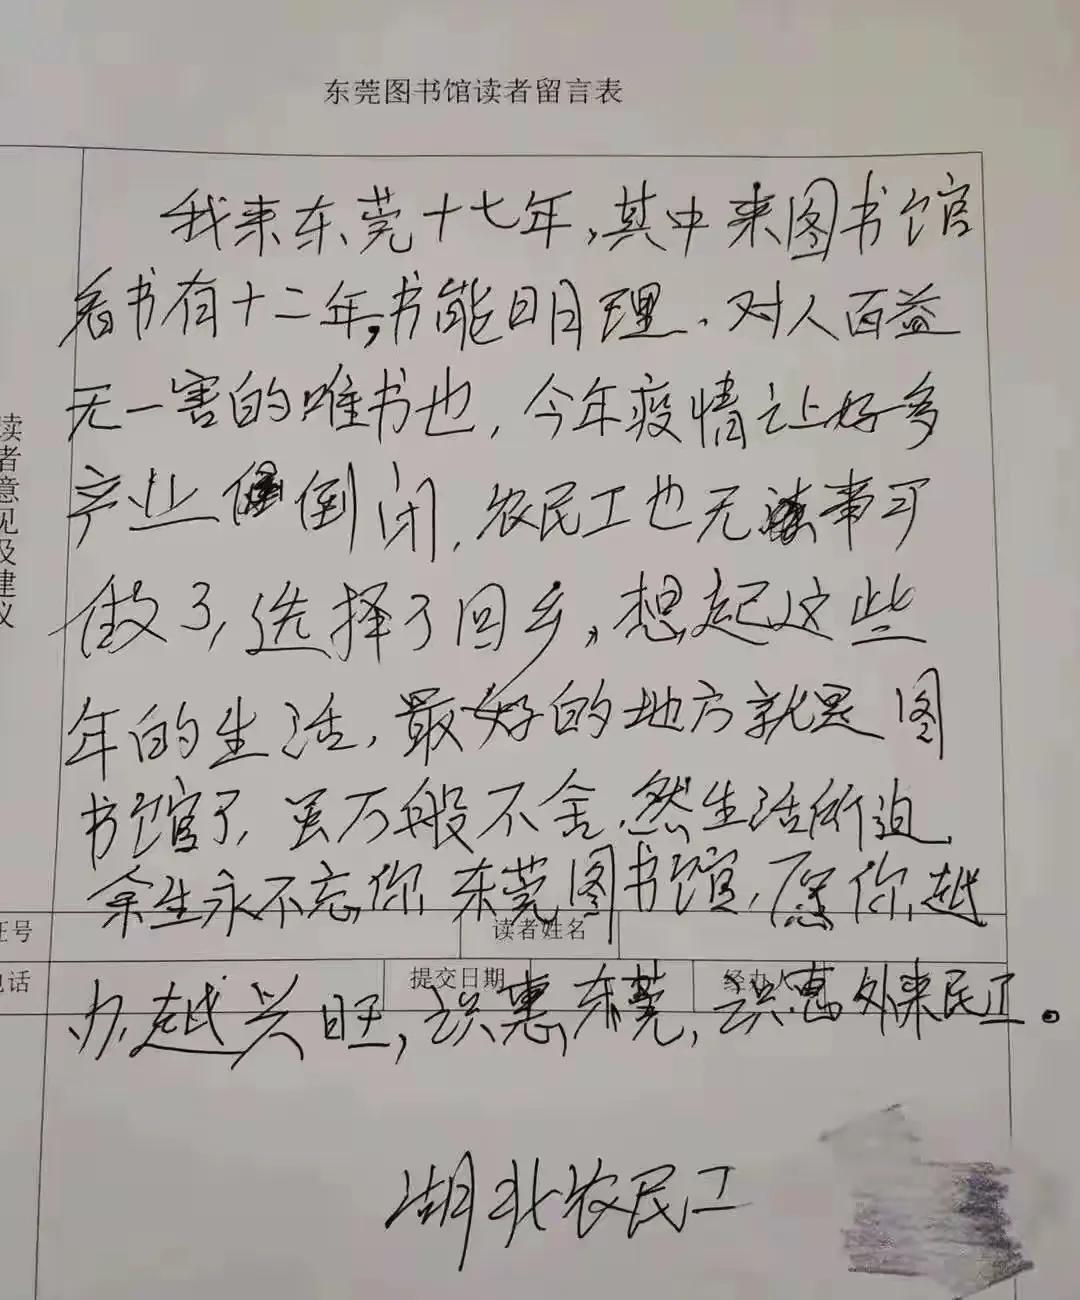 东莞图书馆读者留言表
我来东莞十七年,其中来图书馆
看书有十二年,书能明理、对人百益
无一害的唯书也,今年疫情让好多
产业倒闭,农民工也无事可
做了,选择了回乡,想起这些
年的生活,最好的地方就是图
书馆了,虽万般不舍,然生活所迫,
余生永不忘你,东莞图书馆,愿你越
办越兴旺,识惠东莞,识惠外来民工。
湖北农民工
读者意见及建议
证号
读者姓名
电话
提交日期
经办人